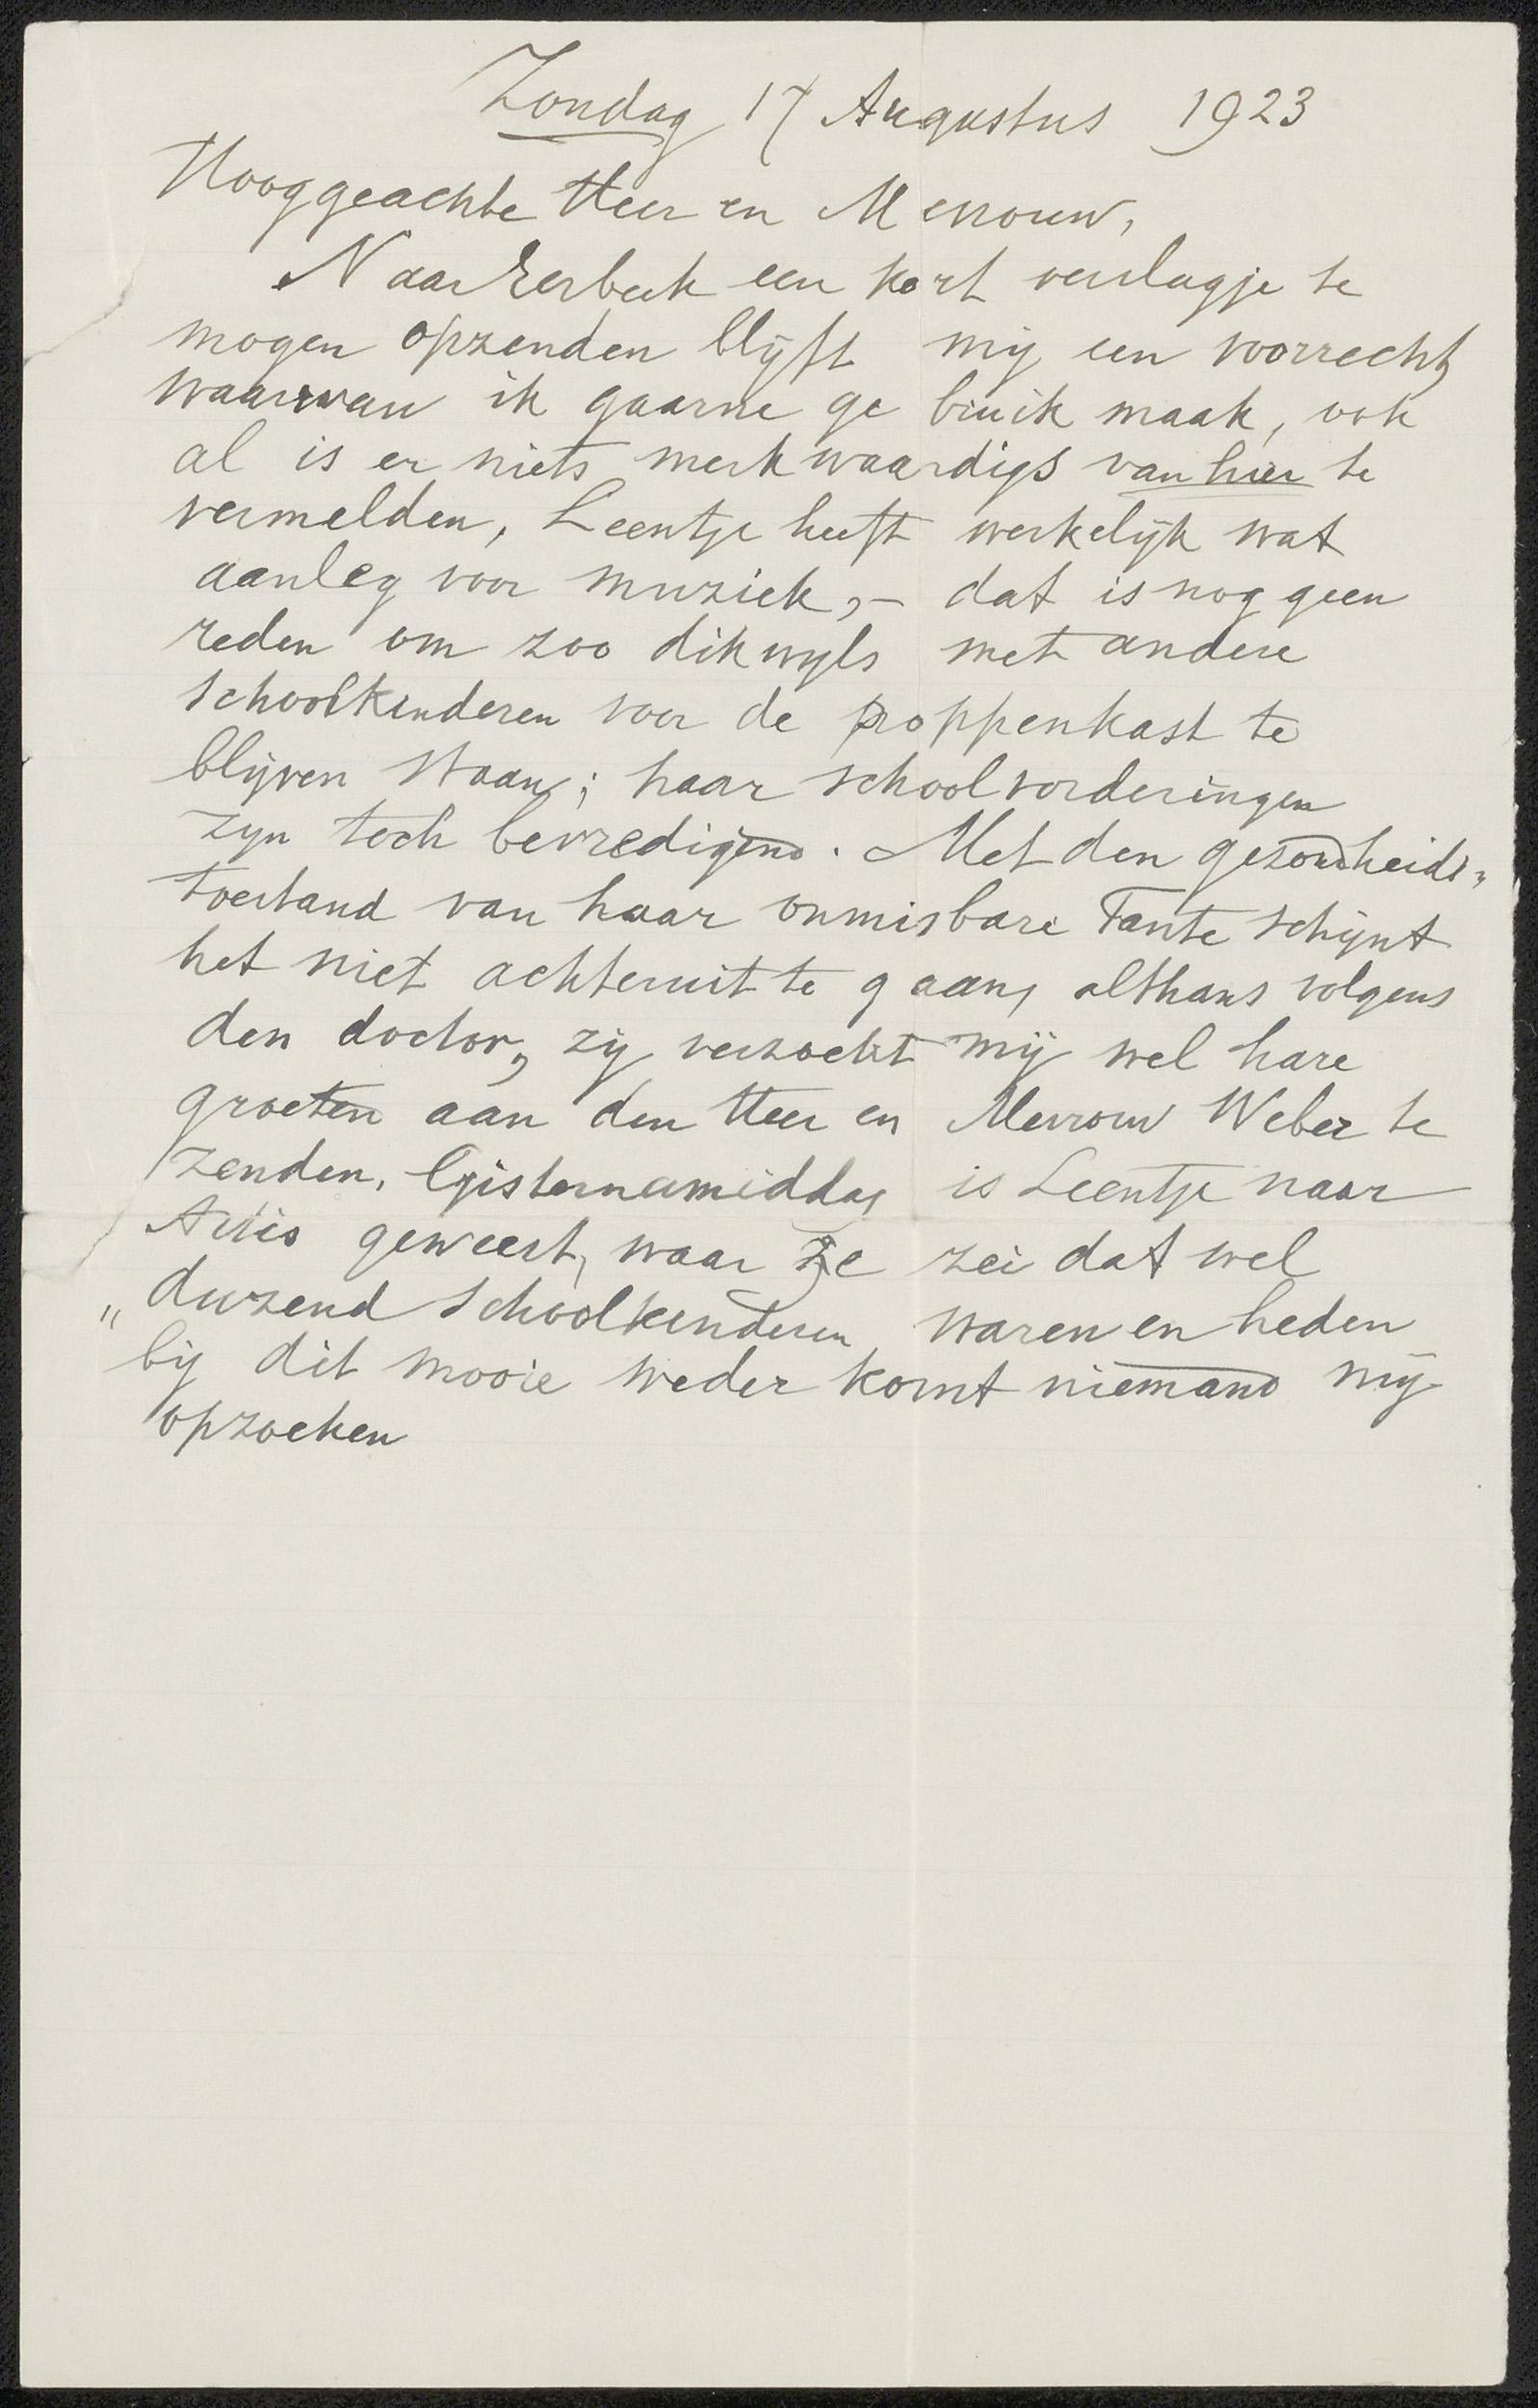 Zondag 17 Augustus 1923
Hooggeachte Heer en Mevrouw,
Naar Eerbeek een kort verslagje te
mogen opzenden blijft mij een voorrecht
waarvan ik gaarne ge bruik maak, ook
al is er niets merkwaardigs van hier te
vermelden, Leentje heeft werkelijk wat
aanleg voor muziek,- dat is nog geen
reden om zoo dikwyls met andere
schoolkinderen voor de poppenkast te
blijven staan; haar schoolvorderingen
zyn toch bevredigend. Met den gezondheids„
toestand van haar onmisbare Tante schijnt
het niet achteruit te gaan, althans volgens
den doctor, zij verzocht mij wel hare
groeten aan den Heer en Mevrouw Weber te
zenden. Gisternamiddag is Leentje naar
Artis geweest, waar ze zei dat wel
„duizend schoolkinderen waren en heden
bij dit mooie weder komt niemand mij
opzoeken